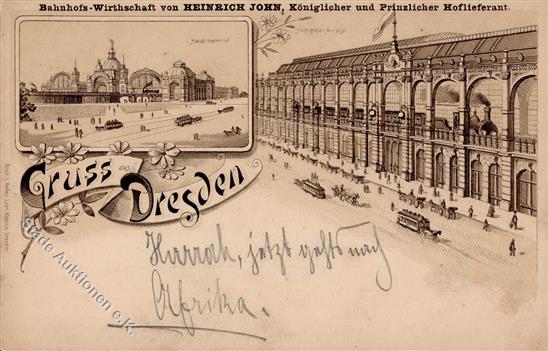 Bahnhofs-Wirthschaft von HEINRICH JOHN, Königlicher und Prinzlicher Hoflieferant.
Hauptbahnhof
Gruss aus Dresden
Harrah, jetzt gehts nach
Afrika.
Stade Auktionen e.K.